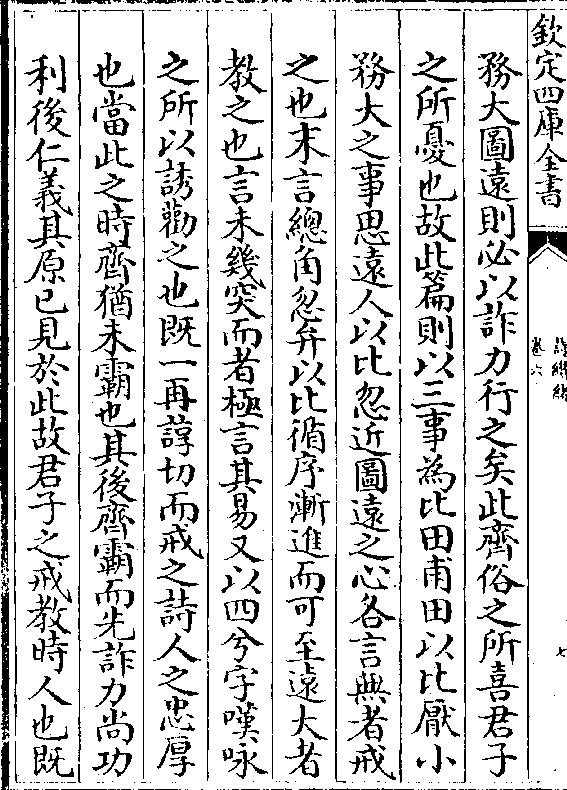 欽定四庫全書
卷六
七
務大圖遠則必以詐力行之矣此齊俗之所喜君子
之所憂也故此篇則以三事為比田甫田以比厭小
務大之事思遠人以比忽近圖遠之心各言無者戒
之也末言總角忽弁以比循序漸進而可至遠大者
教之也言未幾突而者極言其易又以四兮字嘆咏
之所以誘勸之也既一再諄切而戒之詩人之忠厚
也當此之時齊猶未霸也其後齊霸而先詐力尚功
利後仁義其原已見於此故君子之戒教時人也既